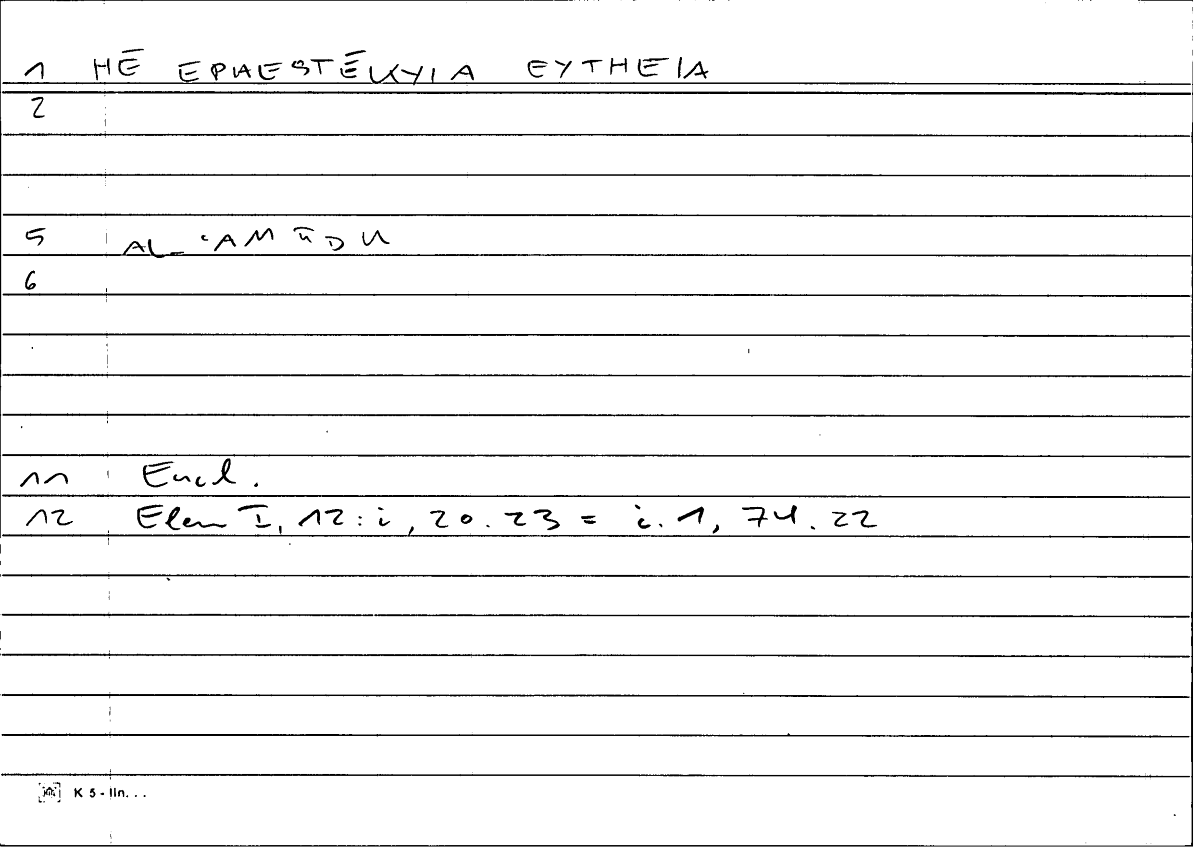 1 HĒ EPHESTĒKYIA EYTHEIA
2
5 AL-ʿAMŪDU
6
11 Eucl.
12 Elem I, 12 : i, 20.23 = i.1, 74.22
K 5 - lin. . .